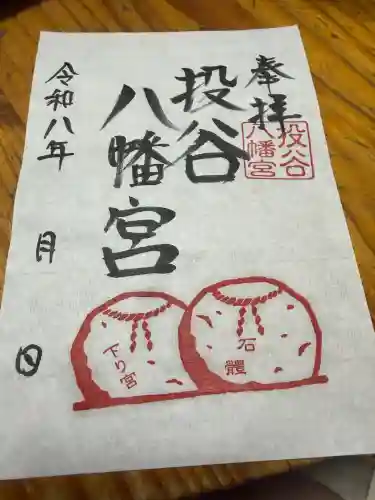 奉拝
投谷
八幡宮
投谷
八幡宮
令和八年
月
日
石
體
下り宮